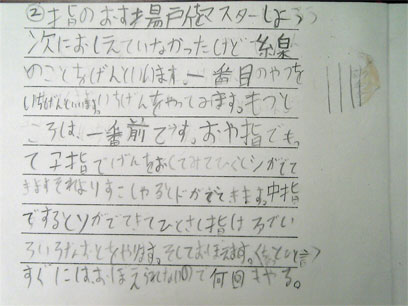 ②指のおす場所をマスターしよう
次におしえていなかったけど糸泉
のことをげんといいます。一番目のやつを
いちげんといいます。いちげんをやってみます。もつと
ころは、一番前です。おや指でも
て 子指でげんをおしてみてひくとシがでて
きますそれよりすこしやるとドがでてきます。中指
でするとソがでてきてひとさし指は ろでい
ろいろなおとをやります。そしておぼえます。
すぐにはおぼえられないので何回もやる。